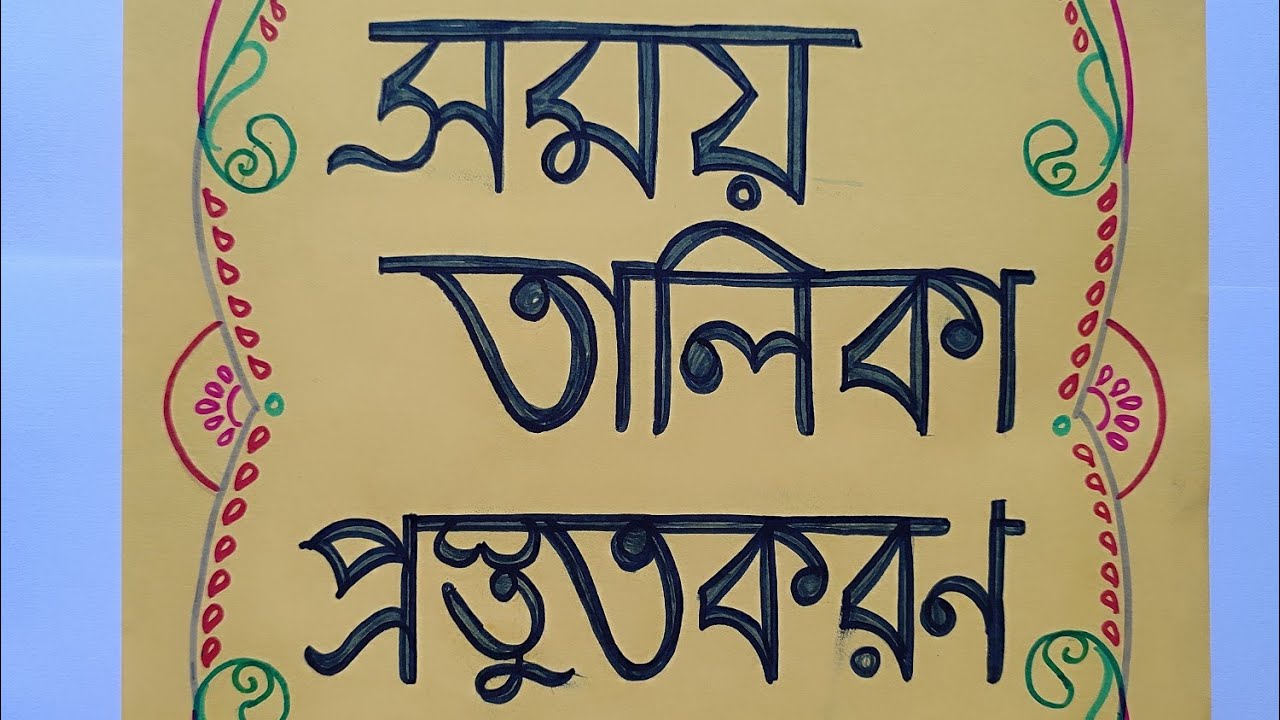 সময়
তালিকা
প্রস্তুতকরণ